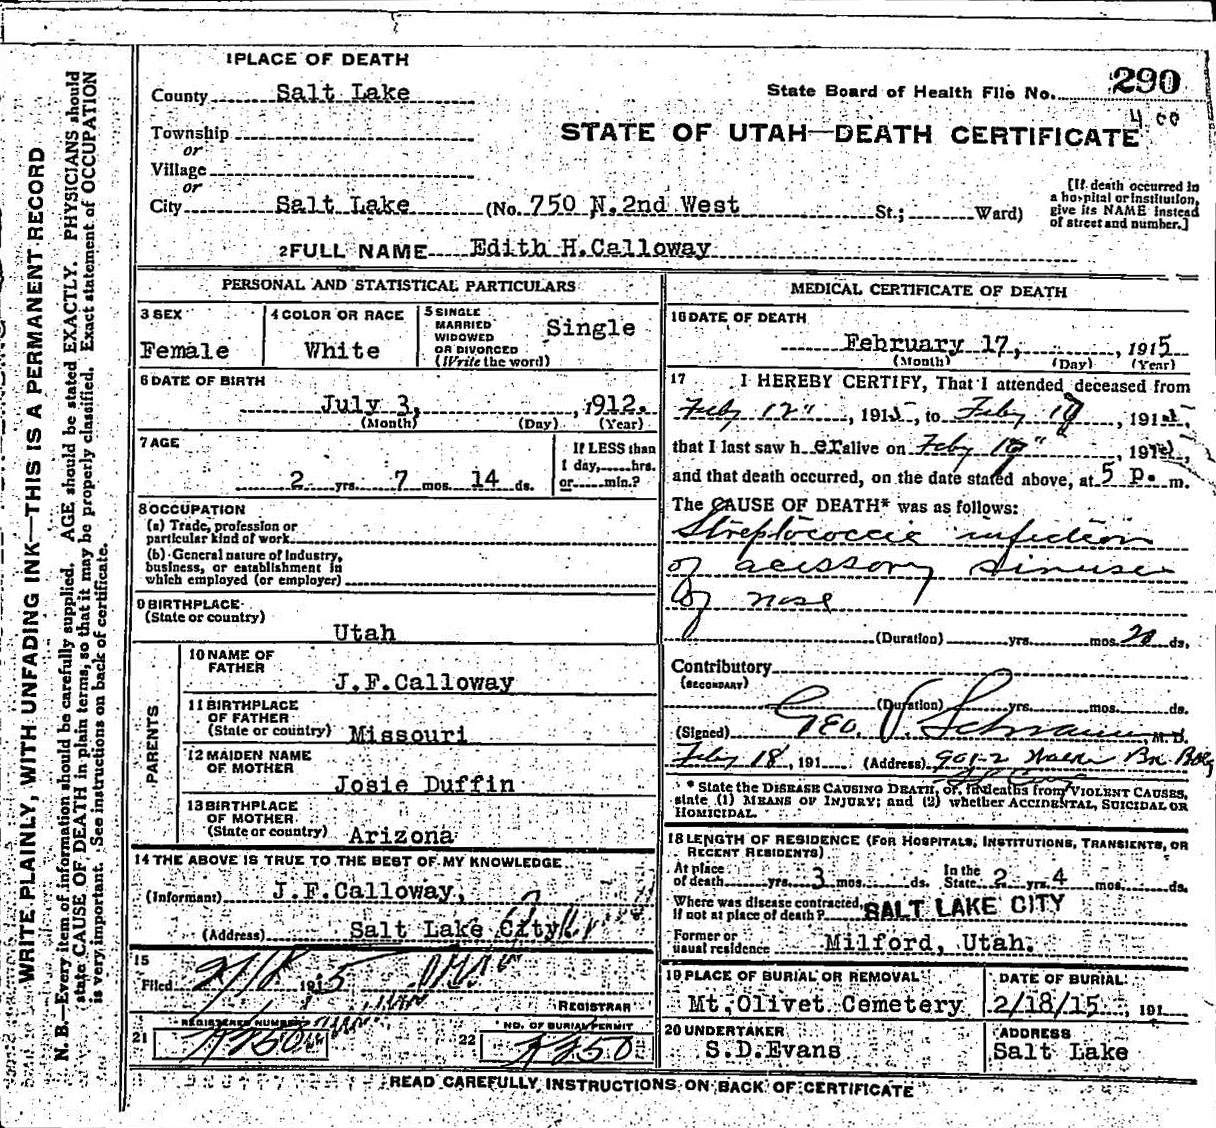 1 PLACE OF DEATH
County Salt Lake
State Board of Health File No. 290
4 00
Township
or
STATE OF UTAH—DEATH CERTIFICATE
Village
or
City Salt Lake (No. 750 N. 2nd West St.; Ward)
[If death occurred in
a hospital or institution,
give its NAME instead
of street and number.]
2 FULL NAME Edith H. Calloway
PERSONAL AND STATISTICAL PARTICULARS
3 SEX
Female
4 COLOR OR RACE
White
5 SINGLE
MARRIED
WIDOWED
OR DIVORCED
(Write the word)
Single
6 DATE OF BIRTH
July 3, , 1912.
(Month) (Day) (Year)
7 AGE
2 yrs. 7 mos. 14 ds.
If LESS than
1 day, hrs.
or min.?
8 OCCUPATION
(a) Trade, profession or
particular kind of work
(b) General nature of industry,
business, or establishment in
which employed (or employer)
9 BIRTHPLACE
(State or country)
Utah
PARENTS
10 NAME OF
FATHER
J.F. Calloway
11 BIRTHPLACE
OF FATHER
(State or country) Missouri
12 MAIDEN NAME
OF MOTHER
Josie Duffin
13 BIRTHPLACE
OF MOTHER
(State or country) Arizona
14 THE ABOVE IS TRUE TO THE BEST OF MY KNOWLEDGE
(Informant) J.F. Calloway,
(Address) Salt Lake City
15
Filed 2/18 1915
REGISTRAR
REGISTERED NUMBER
21
NO. OF BURIAL PERMIT
22
MEDICAL CERTIFICATE OF DEATH
16 DATE OF DEATH
February 17, , 1915
(Month) (Day) (Year)
17 I HEREBY CERTIFY, That I attended deceased from
Feby 12", 1915, to Feby 17, 1915,
that I last saw h er alive on Feby 17", 1915,
and that death occurred, on the date stated above, at 5 P. m.
The CAUSE OF DEATH* was as follows:
Streptococcic infection
of acissory sinuses
of nose
(Duration) yrs. mos. 20 ds.
Contributory
(SECONDARY)
(Duration) yrs. mos. ds.
(Signed) Geo. V. Schramm, M.D.
Feby 18, 191 (Address) 901-2 Walker Bk Bldg
* State the DISEASE CAUSING DEATH, or, in deaths from VIOLENT CAUSES,
state (1) MEANS OF INJURY; and (2) whether ACCIDENTAL, SUICIDAL OR
HOMICIDAL.
18 LENGTH OF RESIDENCE (FOR HOSPITALS, INSTITUTIONS, TRANSIENTS, OR
RECENT RESIDENTS)
At place
of death yrs. 3 mos. ds.
In the
State 2 yrs. 4 mos. ds.
Where was disease contracted,
if not at place of death? SALT LAKE CITY
Former or
usual residence Milford, Utah.
19 PLACE OF BURIAL OR REMOVAL
Mt. Olivet Cemetery
DATE OF BURIAL
2/18/15 , 191
20 UNDERTAKER
S.D. Evans
ADDRESS
Salt Lake
READ CAREFULLY INSTRUCTIONS ON BACK OF CERTIFICATE
WRITE PLAINLY, WITH UNFADING INK—THIS IS A PERMANENT RECORD
N. B.—Every item of information should be carefully supplied. AGE should be stated EXACTLY. PHYSICIANS should
state CAUSE OF DEATH in plain terms, so that it may be properly classified. Exact statement of OCCUPATION
is very important. See instructions on back of certificate.